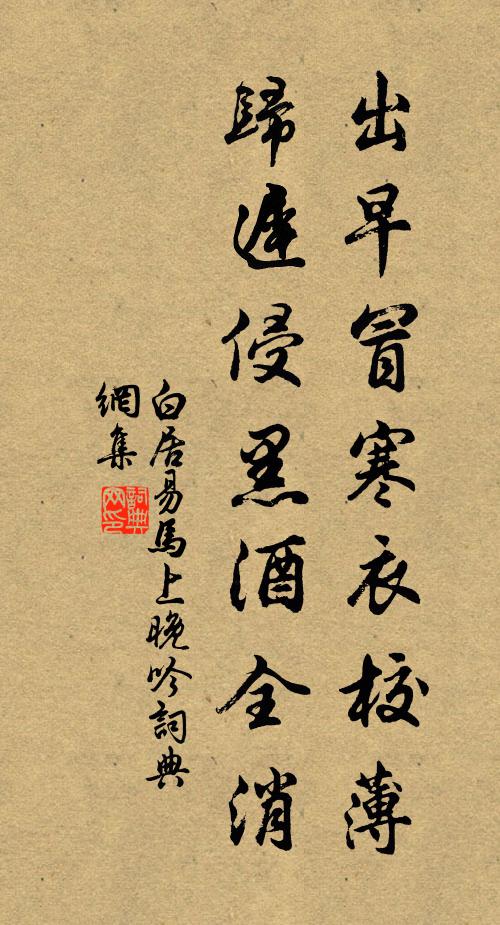 出早冒寒衣校薄
歸遲侵黑酒全消
白居易馬上晚吟詞典
網集
詞典
网印